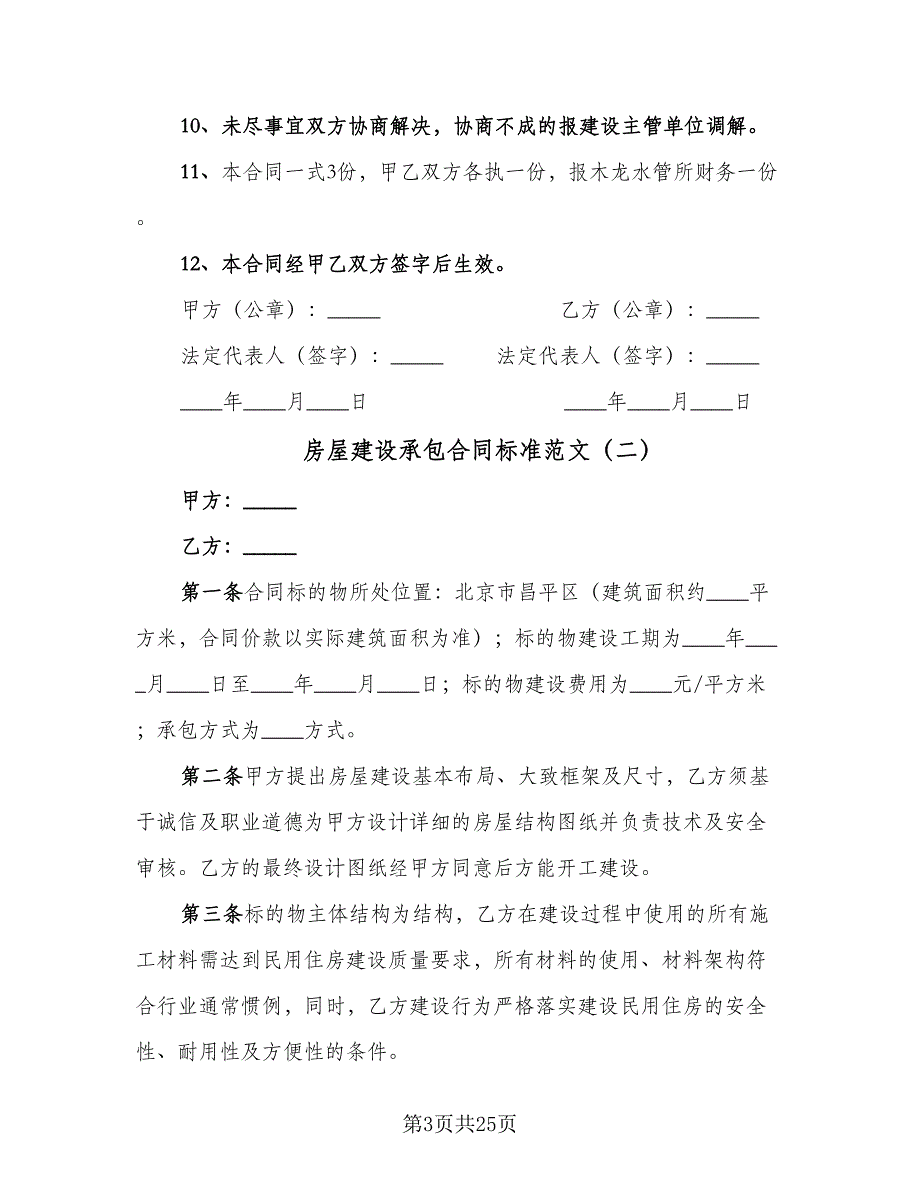 10、未尽事宜双方协商解决，协商不成的报建设主管单位调解。
11、本合同一式3份，甲乙双方各执一份，报木龙水管所财务一份
。
12、本合同经甲乙双方签字后生效。
甲方（公章）：_____ 乙方（公章）：_____
法定代表人（签字）：_____ 法定代表人（签字）：_____
____年____月____日 ____年____月____日
房屋建设承包合同标准范文（二）
甲方：_____
乙方：_____
第一条合同标的物所处位置：北京市昌平区（建筑面积约____平
方米，合同价款以实际建筑面积为准）；标的物建设工期为____年___
_月____日至____年____月____日；标的物建设费用为____元/平方米
；承包方式为____方式。
第二条甲方提出房屋建设基本布局、大致框架及尺寸，乙方须基
于诚信及职业道德为甲方设计详细的房屋结构图纸并负责技术及安全
审核。乙方的最终设计图纸经甲方同意后方能开工建设。
第三条标的物主体结构为结构，乙方在建设过程中使用的所有施
工材料需达到民用住房建设质量要求，所有材料的使用、材料架构符
合行业通常惯例，同时，乙方建设行为严格落实建设民用住房的安全
性、耐用性及方便性的条件。
第3页共25页